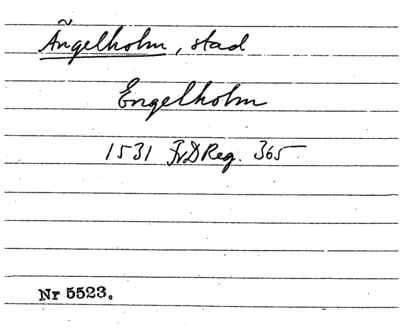 Ängelholm, stad
Engelholm
1531 FrDReg. 365
Nr 5523.